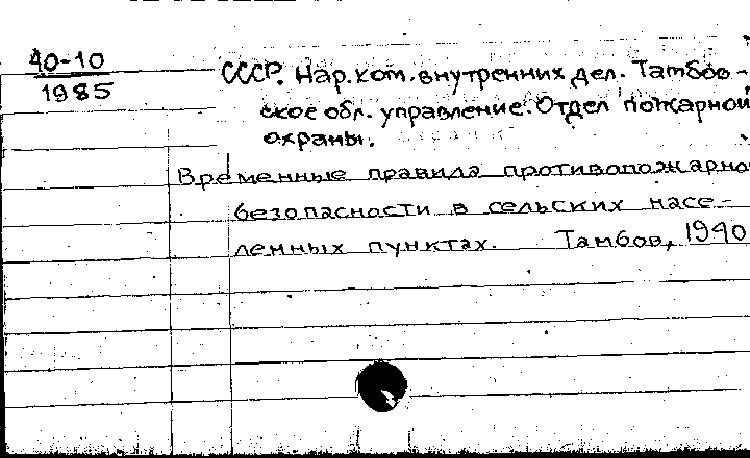 40-10
1985
СССР. Нар.ком.внутренних дел. Тамбов-
ское обл. управление. Отдел пожарной
охраны.
Временные правила противопожарно
безопасности в сельских насе-
ленных пунктах. Тамбов, 1940